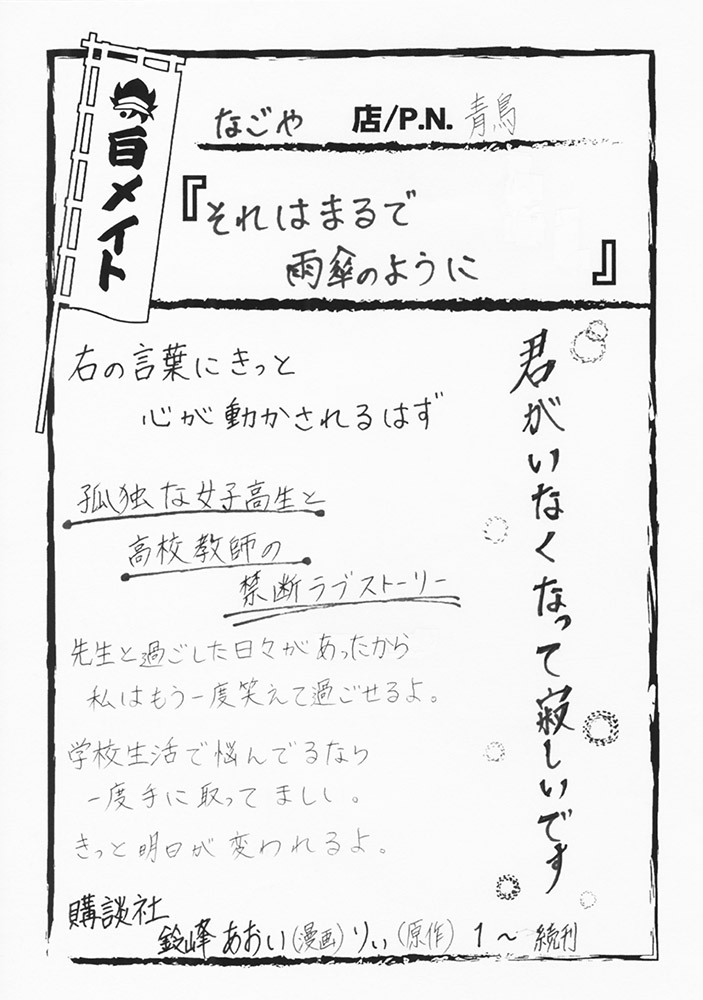 百メイト
なごや 店/P.N. 青鳥
『それはまるで
雨傘のように』
君がいなくなって寂しいです
右の言葉にきっと
心が動かされるはず
孤独な女子高生と
高校教師の
禁断ラブストーリー
先生と過ごした日々があったから
私はもう一度笑えて過ごせるよ。
学校生活で悩んでるなら
一度手に取ってましい。
きっと明日が変われるよ。
購談社
鈴峰あおい(漫画)りぃ(原作) 1〜 続刊